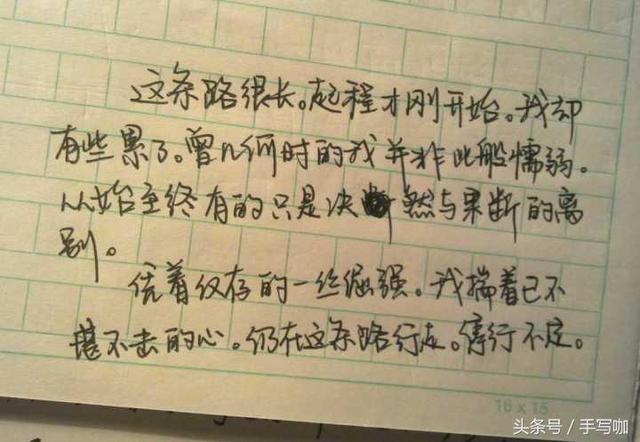 这条路很长。起程才刚开始。我却
有些累了。曾几何时的我并非此般懦弱。
从始至终有的只是决然与果断的离
别。
凭着仅存的一丝倔强。我揣着已不
堪不去的心。仍在这条路行走。停行不定。
16 x 15
头条号 / 手写咖